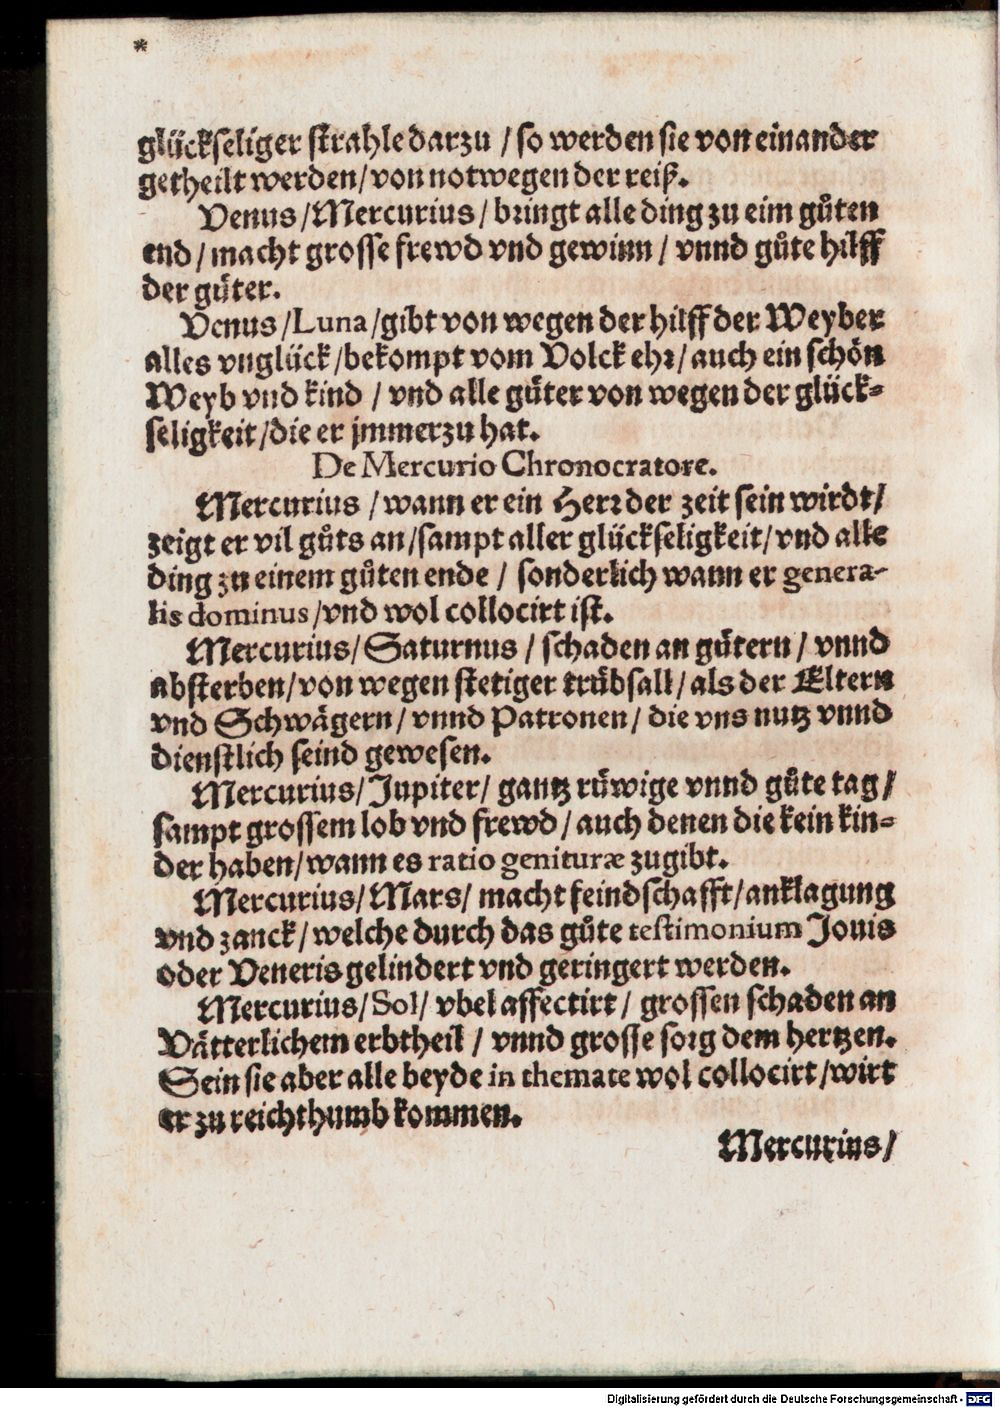 *
glückseliger strahle darzu / so werden sie von einander
getheilt werden/ von notwegen der reiß.
Venus/Mercurius/ bringt alle ding zu eim gůten
end/ macht grosse frewd vnd gewinn / vnnd gůte hilff
der gůter.
Venus/Luna/gibt von wegen der hilff der Weyber
alles vnglück/bekompt vom Volck ehr/ auch ein schön
Weyb vnd kind / vnd alle gůter von wegen der glück⸗
seligkeit/die er jmmerzu hat.
De Mercurio Chronocratore.
Mercurius /wann er ein Herr der zeit sein wirdt/
zeigt er vil gůts an/sampt aller glückseligkeit/vnd alle
ding zu einem gůten ende / sonderlich wann er genera-
lis dominus/vnd wol collocirt ist.
Mercurius/ Saturnus / schaden an gůtern / vnnd
absterben/von wegen stetiger trůbsall/ als der Eltern
vnd Schwägern/ vnnd Patronen/ die vns nutz vnnd
dienstlich seind gewesen.
Mercurius/ Jupiter/ gantz růwige vnnd gůte tag/
sampt grossem lob vnd frewd / auch denen die kein kin⸗
der haben/wann es ratio genituræ zugibt.
Mercurius/Mars/ macht feindschafft/anklagung
vnd zanck/ welche durch das gůte testimonium Jouis
oder Veneris gelindert vnd geringert werden.
Mercurius/Sol/ vbel affectirt/ grossen schaden an
Vätterlichem erbtheil / vnnd grosse sorg dem hertzen.
Sein sie aber alle beyde in themate wol collocirt/wirt
er zu reichthumb kommen.
Mercurius/
Digitalisierung gefördert durch die Deutsche Forschungsgemeinschaft - DFG